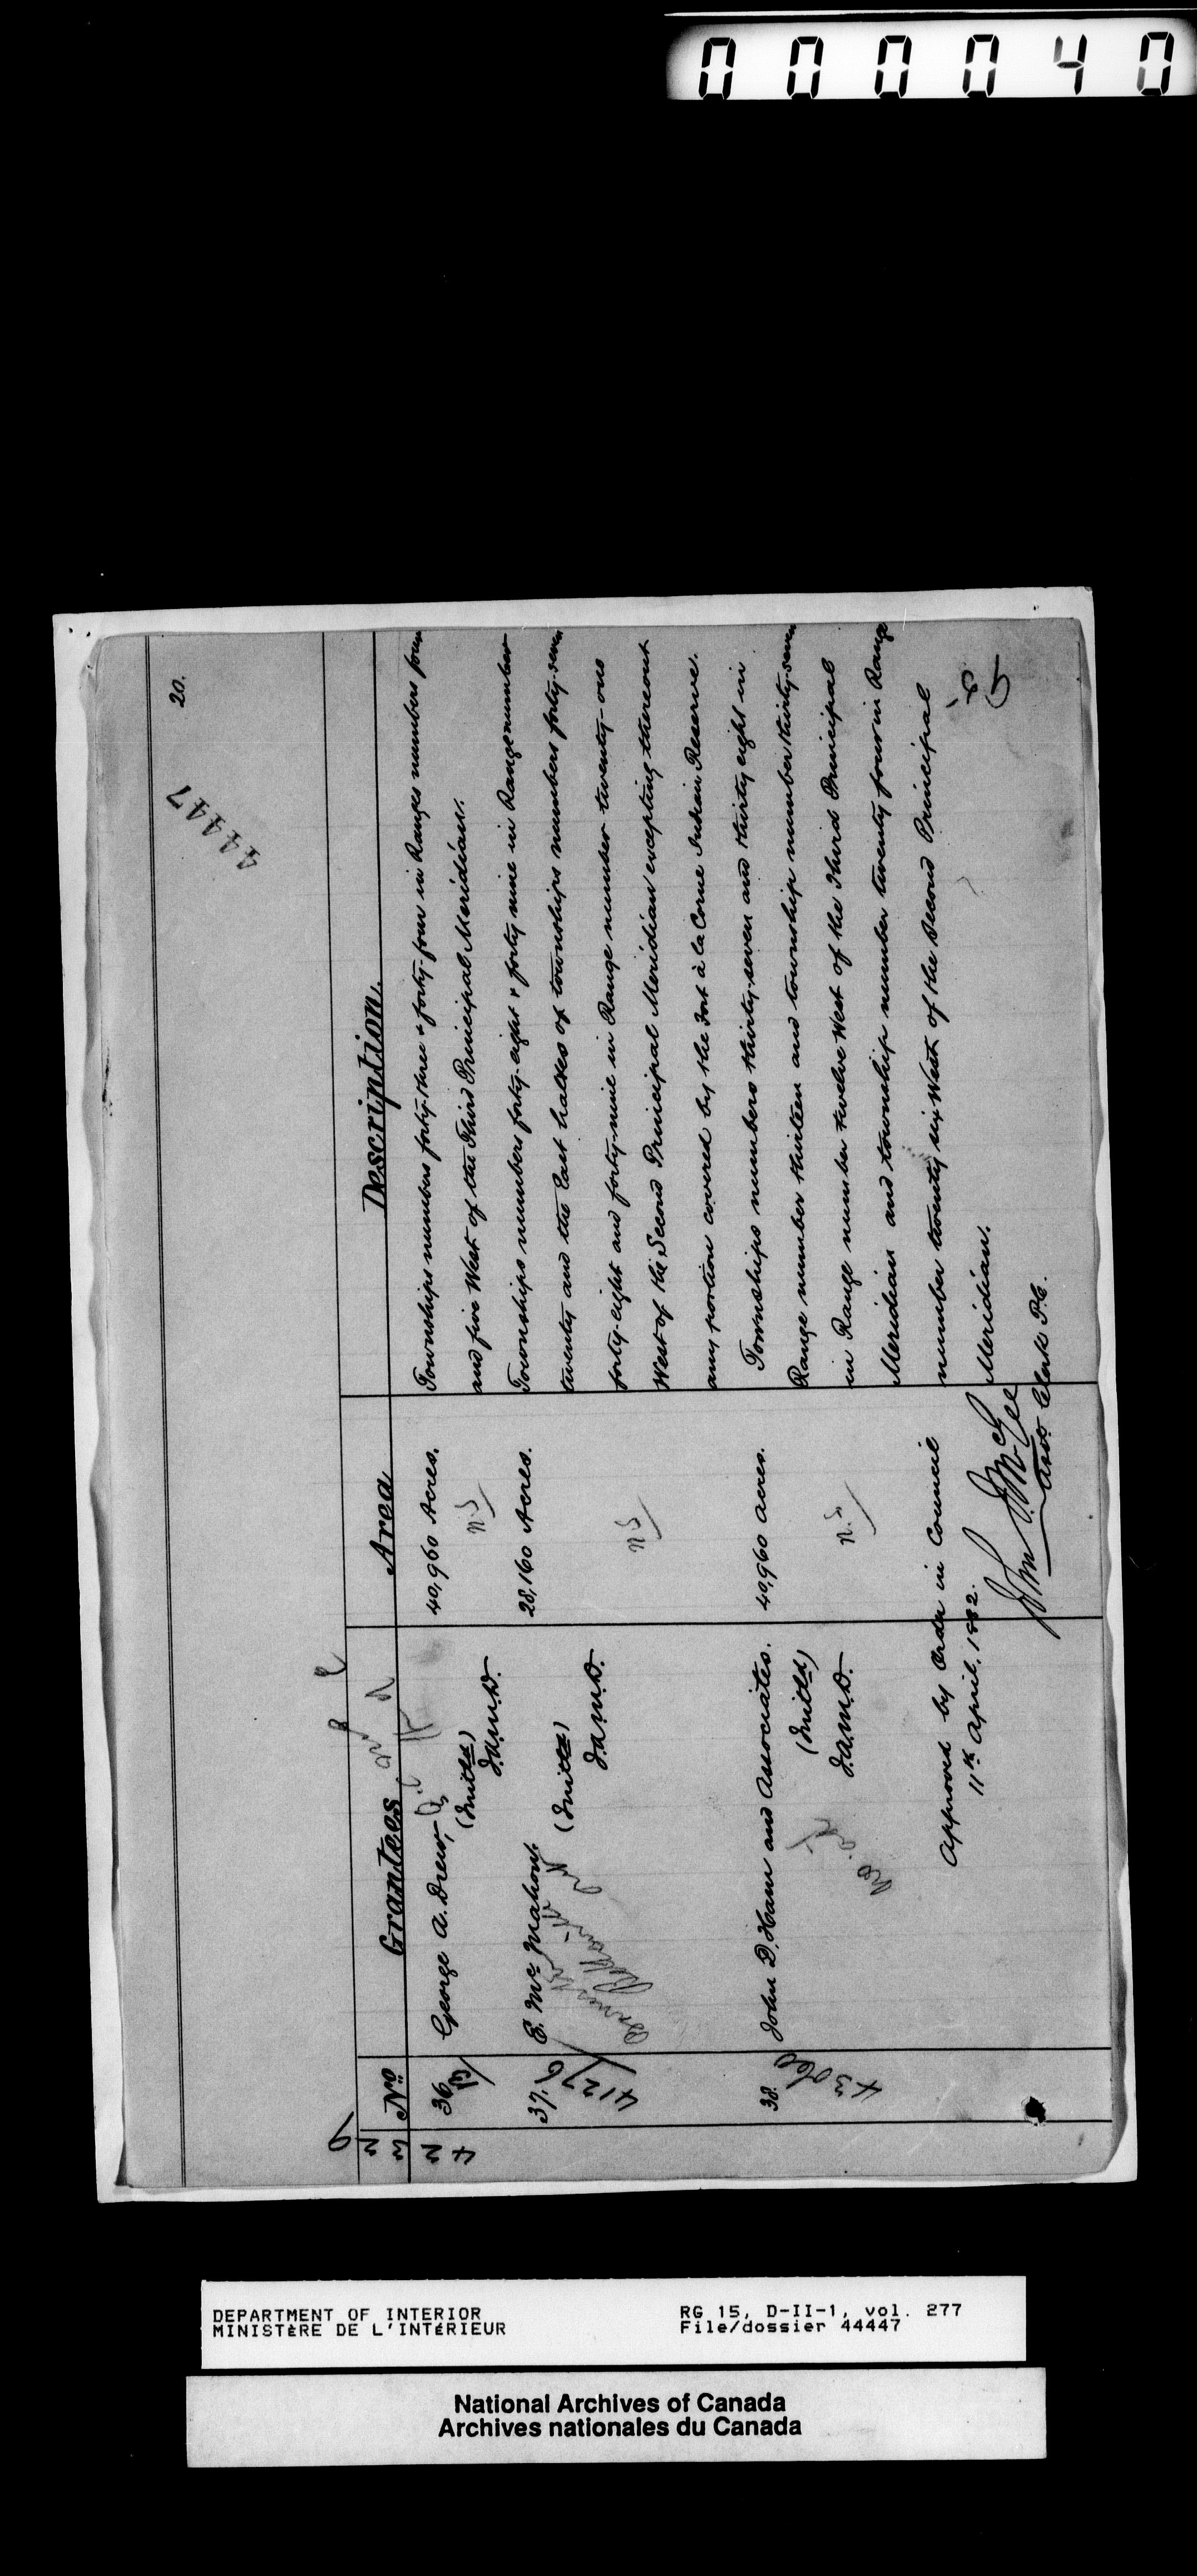 000040
20.
44447
No Grantees Area Description.
36. George A. Drew, 40,960 Acres. Townships numbers forty-three & forty-four in Ranges numbers four
(Initd) J.A.M.D. and five West of the Third Principal Meridian.
37. E. McMahon. 28,160 Acres. Townships numbers forty-eight & forty nine in Range number
(Initd) J.A.M.D. twenty and the East halves of townships numbers forty-seven
41276
forty-eight and forty-nine in Range number twenty-one
West of the Second Principal Meridian excepting thereout
any portion covered by the Fort à la Corne Indian Reserve.
38. John D. Ham and Associates. 40,960 acres. Townships numbers thirty-seven and thirty eight in
43060
(Initd) Range number thirteen and township number thirty-seven
J.A.M.D. in Range number twelve West of the Third Principal
Meridian and township number twenty four in Range
number twenty six West of the Second Principal
Meridian.
Approved by Order in Council
11th April, 1882.
Asst. Clerk P.C.
DEPARTMENT OF INTERIOR
MINISTÈRE DE L'INTÉRIEUR
RG 15, D-II-1, vol. 277
File/dossier 44447
National Archives of Canada
Archives nationales du Canada